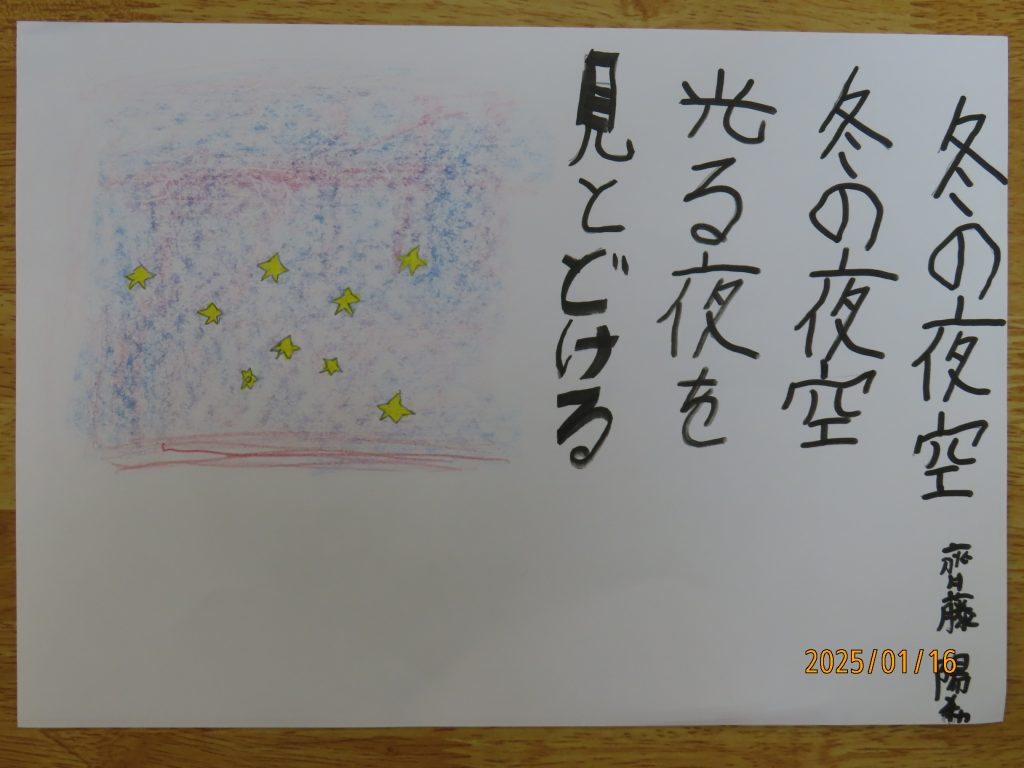 冬の夜空
齊藤 陽
冬の夜空
光る夜を
見とどける
2025/01/16